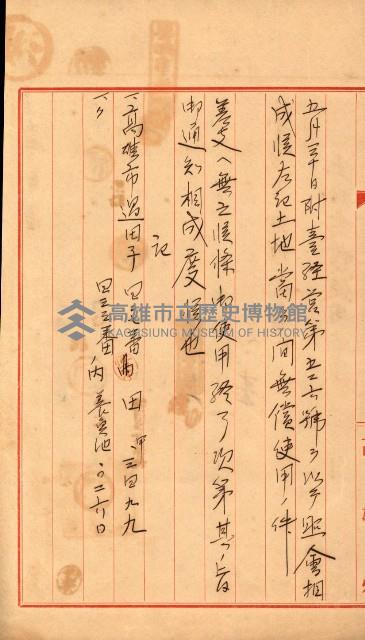 五月三十日附臺經營第五二六號ヲ以テ照會相
成候左記土地當分ノ間無償使用ノ件
差支ヘ無之候條 使用終了次第其ノ旨
御通知相成度候也
記
一、高雄市過田子 四 番ノ內 田 甲 三四九九
一、〃 四三三番ノ內 養魚池 〇二六〇
高雄市立歷史博物館
KAOHSIUNG MUSEUM OF HISTORY